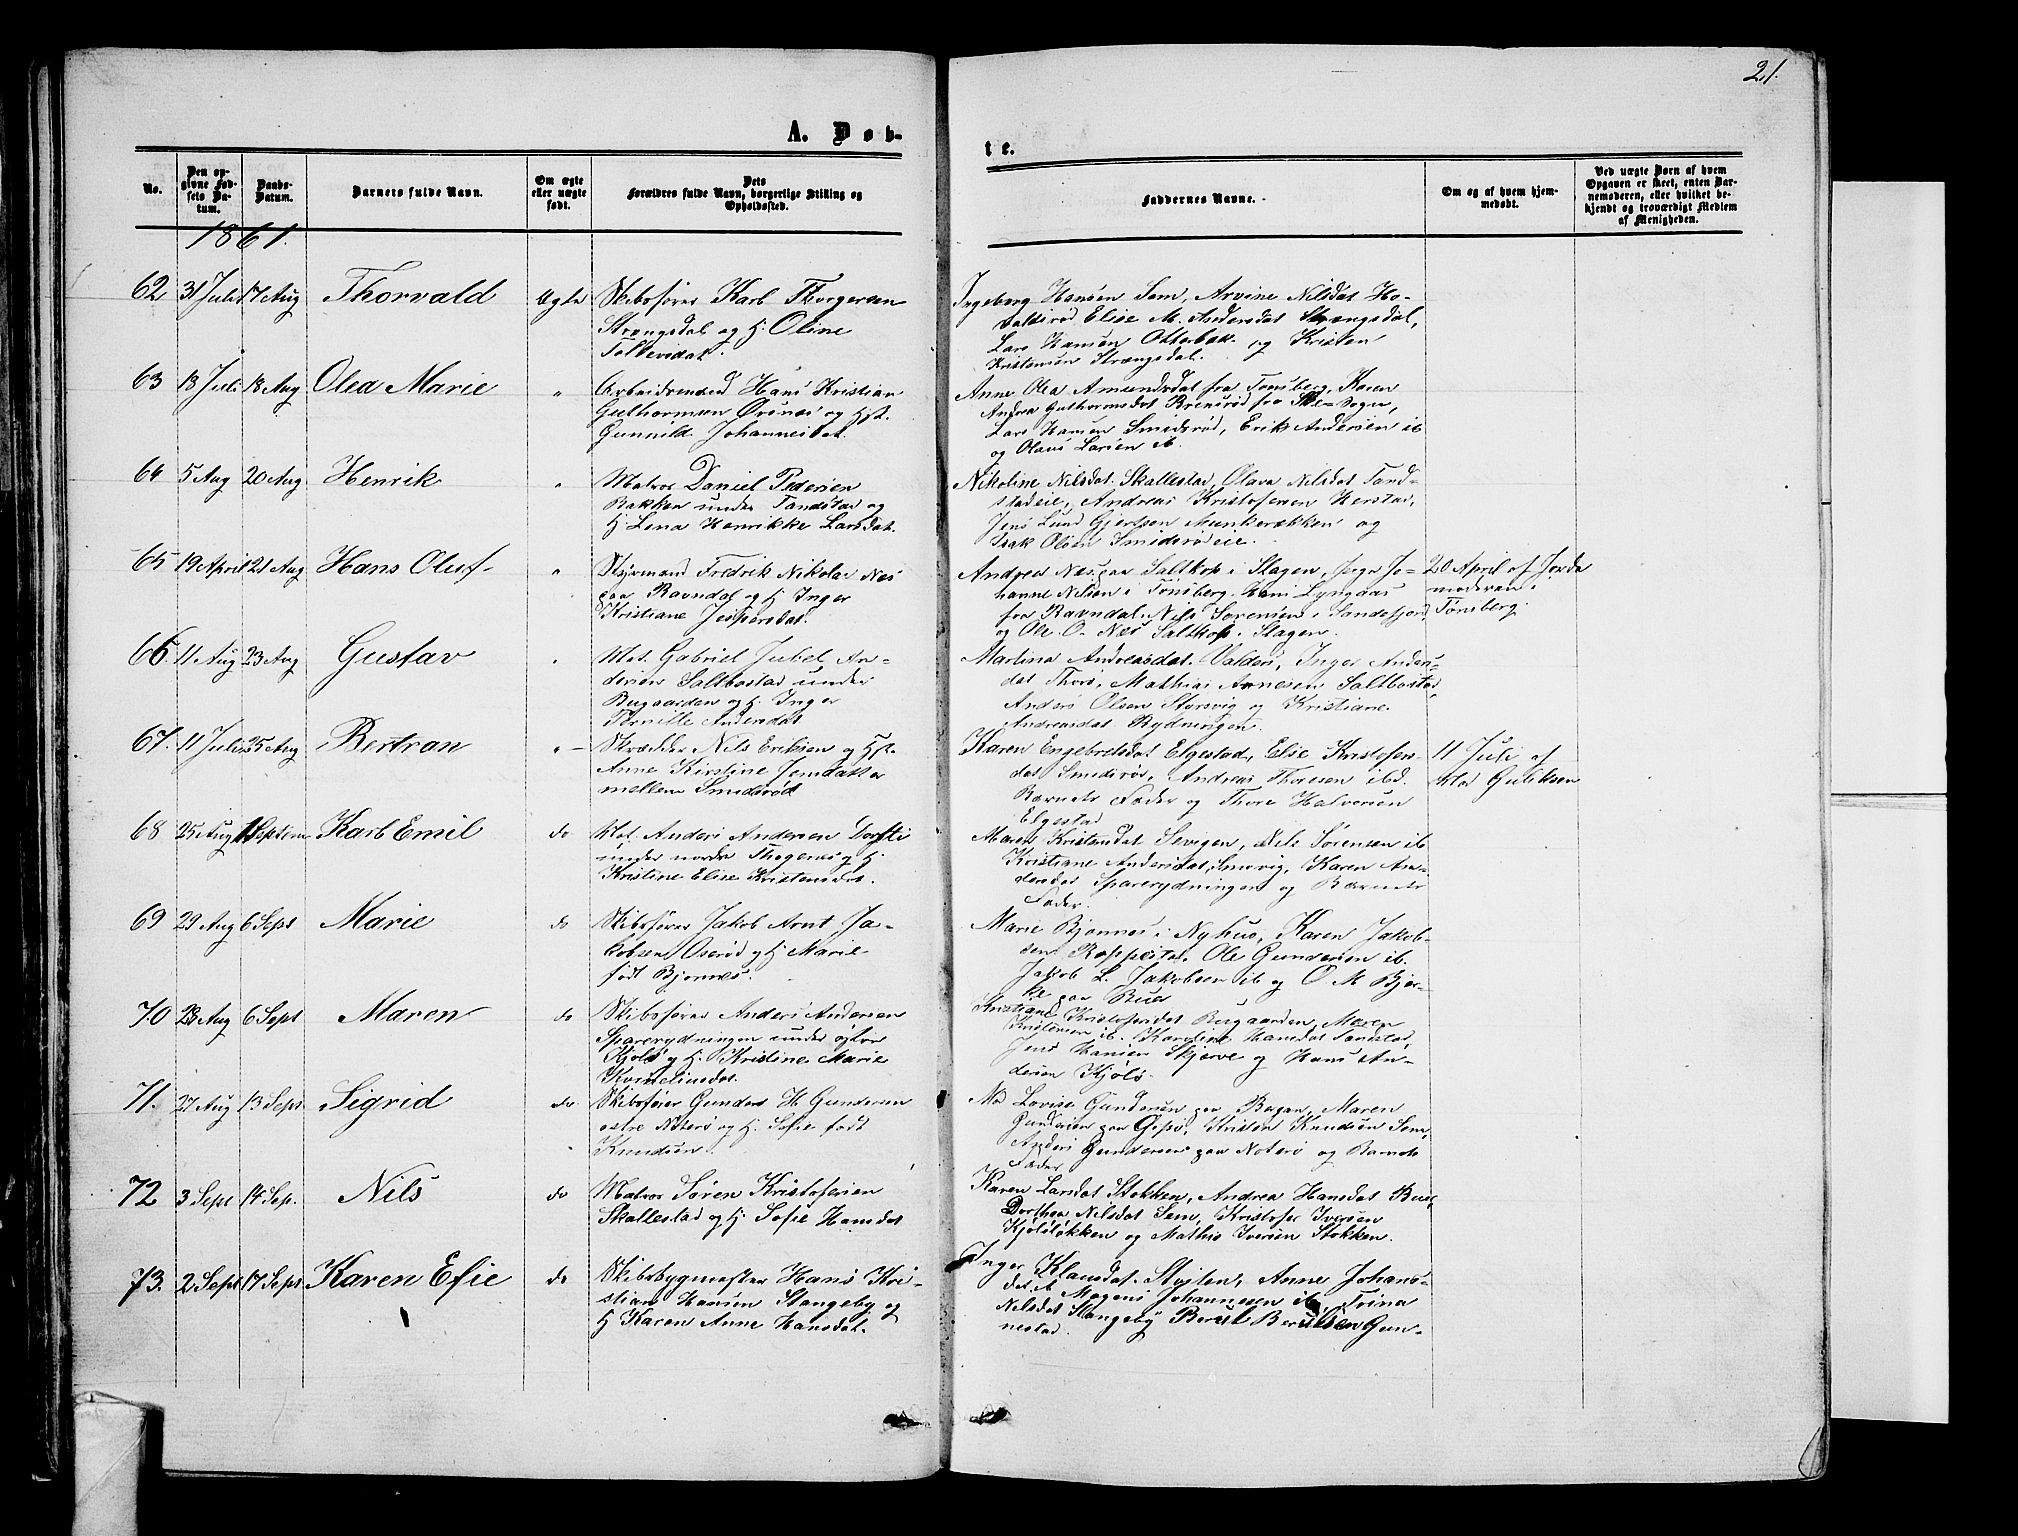 21.
A. Døb-
te.
No.
Den op-
givne Fød-
sels Da-
tum.
Daabs-
Datum.
Barnets fulde Navn.
Om ægte
eller uægte
født.
Dets
Forældres fulde Navn, borgerlige Stilling og
Opholdssted.
Faddernes Navne.
Om og af hvem hjem-
medøbt.
Ved uægte Børn af hvem
Opgaven er skeet, enten Bar-
nemoderen, eller hvilket be-
kjendt og troværdigt Medlem
af Menigheden.
1861.
62 31 Juli 17 Aug Thorvald Ægte
Skibsfører Karl Thorgersen
Strengsdal og H. Oline
Tollevsdat.
Ingeborg Hansen Sem, Arvine Nilsdat Ho-
Elise M. Andersdat Strængsdal,
Lars Hansen Otterbæk og Kristen
Kristensen Strængsdal.
63 13 Juli 18 Aug Olea Marie "
Arbeidsmand Hans Kristian
Guthormsen Ørsnes og Hst.
Gunnild Johannesdat.
Anne Olea Amundsdat fra Tønsberg, Karen
Andrea Guthormsdat Brensrød fra Sogn,
Lars Hansen Smidsrød, Erik Andersen ib
og Olaus Larsen ib.
64 5 Aug 20 Aug Henrik "
Matros Daniel Pedersen
Bakken under Tandstad og
H. Lena Henrikke Larsdat.
Nikoline Nilsdat Skallestad, Olava Nilsdat Tand-
stadeie, Andreas Kristofersen Herstad,
Jens Lund Gjertsen Munkerækken og
Isak Olsen Smidsrødeie.
65 19 April 21 Aug Hans Oluf "
Styrmand Fredrik Nikolai Næs
paa Ravndal og H. Inger
Kristiane Jespersdat.
Andrea Næs paa Saltkop i Slagen, Jo-
hanne Nilsen i Tønsberg, Hans Lyngaas
fra Ravndal, Nils Sørensen i Sandefjord
og Ole O. Næs Saltkop i Slagen.
20 April af Jorde-
moderen i
Tønsberg.
66. 11 Aug 23 Aug Gustav "
Mat. Gabriel Jubel An-
dersen Saltbostad under
Bugaarden og H. Inger
Pernille Andersdat
Martina Andreasdat. Valders, Inger Anders-
dat Thorø, Mathias Arnesen Saltbostad
Anders Olsen Storsvig og Kristiane
Andreasdat Rydningen.
67. 11 Juli 25 Aug Bertran "
Skrædder Nils Eriksen og Hst.
Anne Kirstine Jensdatter
mellem Smidsrød
Karen Engebretsdat Elgestad, Else Kristofers-
dat Smidsrød, Andreas Thoresen ibd.
Barnets Fader og Thore Halversen
Elgestad
11 Juli af
Guliksen
68 25 Aug 1 Septem Karl Emil do
Mat. Anders Andersen
under nordre og H.
Kristine Elise Kristensdat.
Maren Kristensdat Sevigen, Nils Sørensen ib
Kristiane Andersdat Smevig, Karen An-
dersdat Sparerydningen og Barnets
Fader.
69 29 Aug 6 Sept Marie do
Skibsfører Jakob Arnt Ja-
kobsen Oserød og H. Marie
født Bjønnes.
Marie Bjønnes i Nyhus, Karen Jakob-
sen Roppestad, Ole Gundersen ib.
Jakob L. Jakobsen ib og O M Bjer-
ke paa Buer
70 23 Aug 6 Sept Maren do
Skibsfører Anders Andersen
Sparerydningen under østre
Kjølø og H. Kristine Marie
Korneliusdat.
Kristiane Kristofersdat Bugaarden, Maren
Kristensen ib. Karoline Hansdat Tandstad,
Jens Hansen Skjerve og Hans An-
dersen Kjølø.
71. 27 Aug 13 Sept Sigrid do
Skibsfører Gunder H. Gundersen
østre Nøterø og H. Sofie født
Knudsen.
Mad Lovise Gundersen paa Bogan, Maren
Gundersen paa Gipø, Kristen Knudsen Sem,
Anders Gundersen paa Nøterø og Barnets
Fader
72 3 Sept 14 Sep. Nils do
Matros Søren Kristofersen
Skallestad og H. Sofie Hansdat
Karen Larsdat Stokken, Andrea Hansdat Buer,
Dorthea Nilsdat Sem, Kristofer Iversen
Kjøleløkken og Mathis Iversen Stokken.
73. 2 Sept 17 Sept Karen Efie do
Skibsbygmester Hans Kri-
stian Hansen Stangeby og
H Karen Anne Hansdat.
Inger Klausdat. Sløjten, Anne Johans-
dat ib Mogens Johannesen ib, Trina
Nilsdat Stangeby Berul Berulsen Gun-
nestad.